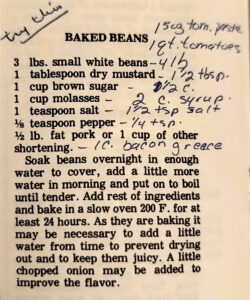 try this
15 oz tom. paste
BAKED BEANS
1 qt. tomatoes
3 lbs. small white beans - 4 lb
1 tablespoon dry mustard - 1 1/2 tbsp.
1 cup brown sugar - 1 1/2 c.
1 cup molasses - 2 c. syrup.
1 teaspoon salt - 1 1/2 tsp salt
⅛ teaspoon pepper - 1/4 tsp.
½ lb. fat pork or 1 cup of other
shortening. - 1 c. bacon greace
Soak beans overnight in enough
water to cover, add a little more
water in morning and put on to boil
until tender. Add rest of ingredients
and bake in a slow oven 200 F. for at
least 24 hours. As they are baking it
may be necessary to add a little
water from time to prevent drying
out and to keep them juicy. A little
chopped onion may be added to
improve the flavor.